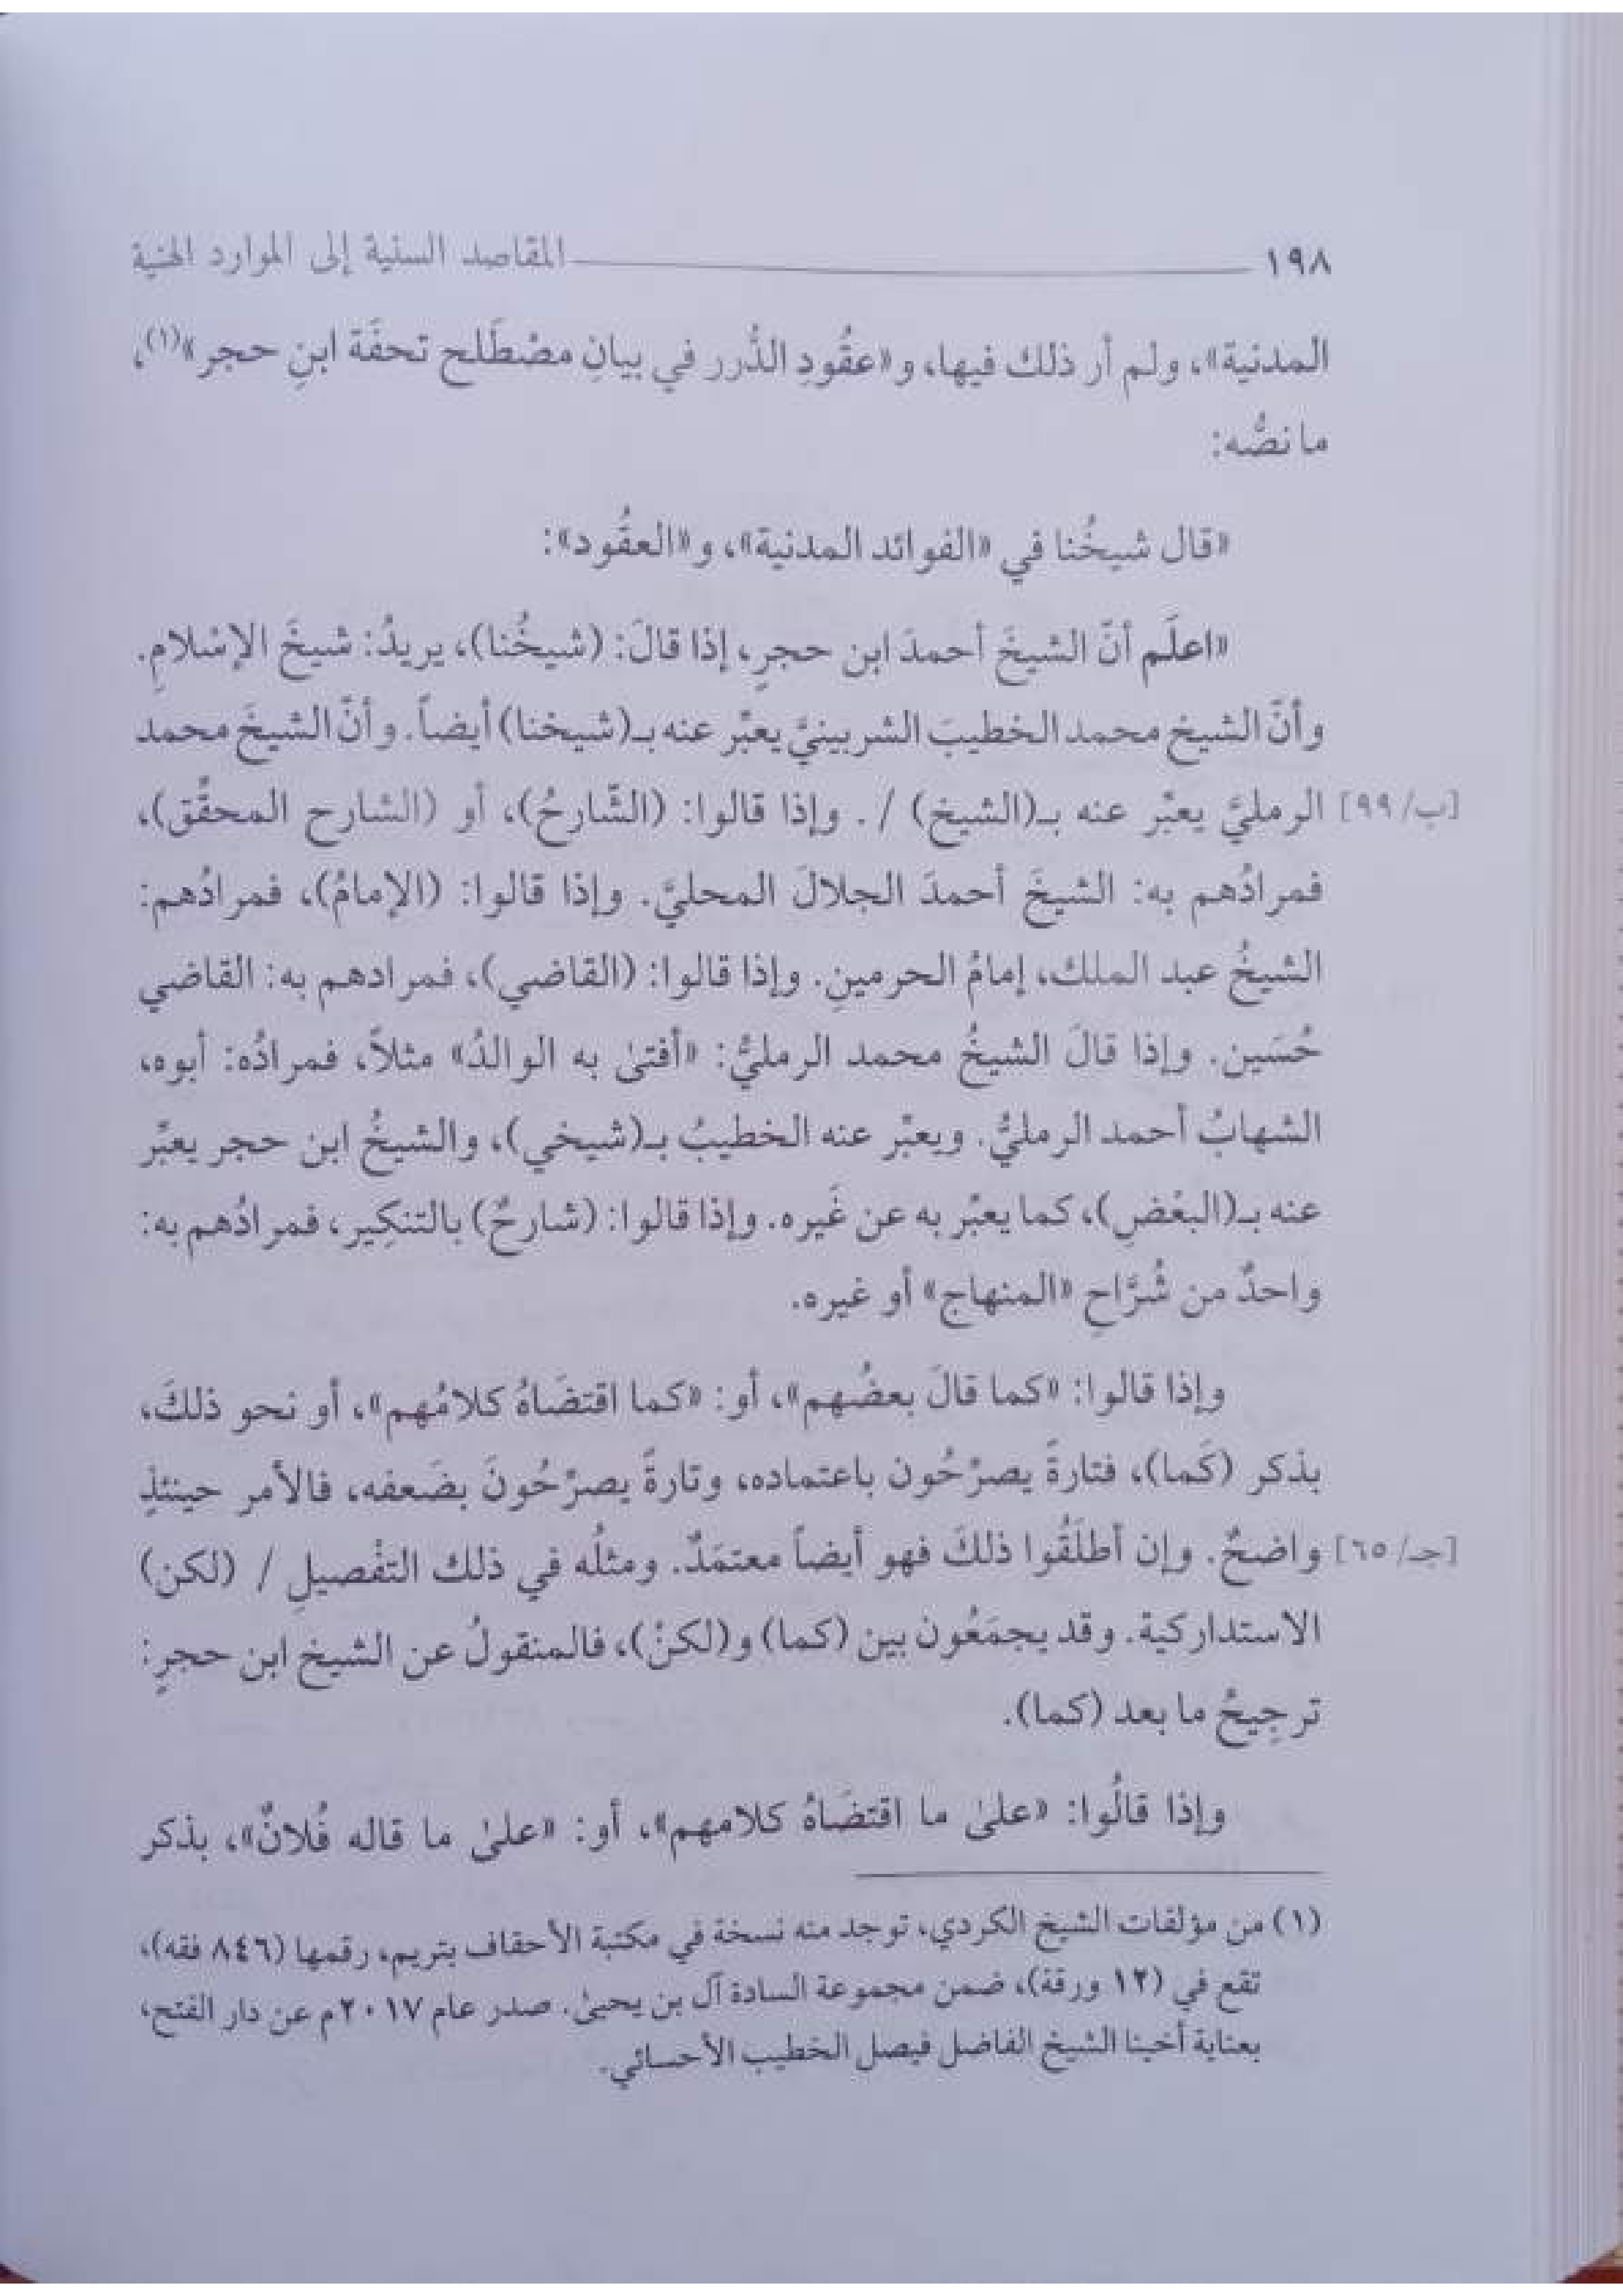 ١٩٨ المقاصد السنية إلى الموارد الهنية
المدنية»، ولم أر ذلك فيها، و«عقُودِ الدُّرر في بيانِ مصْطَلح تحفَة ابنِ حجر»(١)،
ما نصُّه:
«قال شيخُنا في «الفوائد المدنية»، و«العقُود»:
«اعلَم أنّ الشيخَ أحمدَ ابن حجرٍ، إذا قالَ: (شيخُنا)، يريدُ: شيخَ الإسْلامِ.
وأنّ الشيخ محمد الخطيبَ الشربينيَّ يعبِّر عنه بـ(شيخنا) أيضاً. وأنّ الشيخَ محمد
[ب/ ٩٩] الرمليَّ يعبِّر عنه بـ(الشيخ) /. وإذا قالوا: (الشّارحُ)، أو (الشارح المحقِّق)،
فمرادُهم به: الشيخَ أحمدَ الجلالَ المحليَّ. وإذا قالوا: (الإمامُ)، فمرادُهم:
الشيخُ عبد الملك، إمامُ الحرمينِ. وإذا قالوا: (القاضي)، فمرادهم به: القاضي
حُسَين. وإذا قالَ الشيخُ محمد الرمليُّ: «أفتىٰ به الوالدُ» مثلاً، فمرادُه: أبوه،
الشهابُ أحمد الرمليُّ. ويعبِّر عنه الخطيبُ بـ(شيخي)، والشيخُ ابن حجر يعبِّر
عنه بـ(البعْضِ)، كما يعبِّر به عن غَيره. وإذا قالوا: (شارحٌ) بالتنكِير، فمرادُهم به:
واحدٌ من شُرَّاحِ «المنهاج» أو غيره.
وإذا قالوا: «كما قالَ بعضُهم»، أو: «كما اقتضَاهُ كلامُهم»، أو نحو ذلكَ،
بذكر (كَما)، فتارةً يصرّحُون باعتماده، وتارةً يصرّحُونَ بضَعفه، فالأمر حينئذٍ
[جـ/ ٦٥] واضحٌ. وإن أطلَقُوا ذلكَ فهو أيضاً معتمَدٌ. ومثلُه في ذلك التفْصيلِ / (لكن)
الاستداركية. وقد يجمَعُون بين (كما) و(لكنْ)، فالمنقولُ عن الشيخ ابن حجرٍ:
ترجِيحُ ما بعد (كما).
وإذا قالُوا: «علىٰ ما اقتضَاهُ كلامهم»، أو: «علىٰ ما قاله فُلانٌ»، بذكر
(١) من مؤلفات الشيخ الكردي، توجد منه نسخة في مكتبة الأحقاف بتريم، رقمها (٨٤٦ فقه)،
تقع في (١٢ ورقة)، ضمن مجموعة السادة آل بن يحيىٰ. صدر عام ٢٠١٧م عن دار الفتح،
بعناية أخينا الشيخ الفاضل فيصل الخطيب الأحسائي.